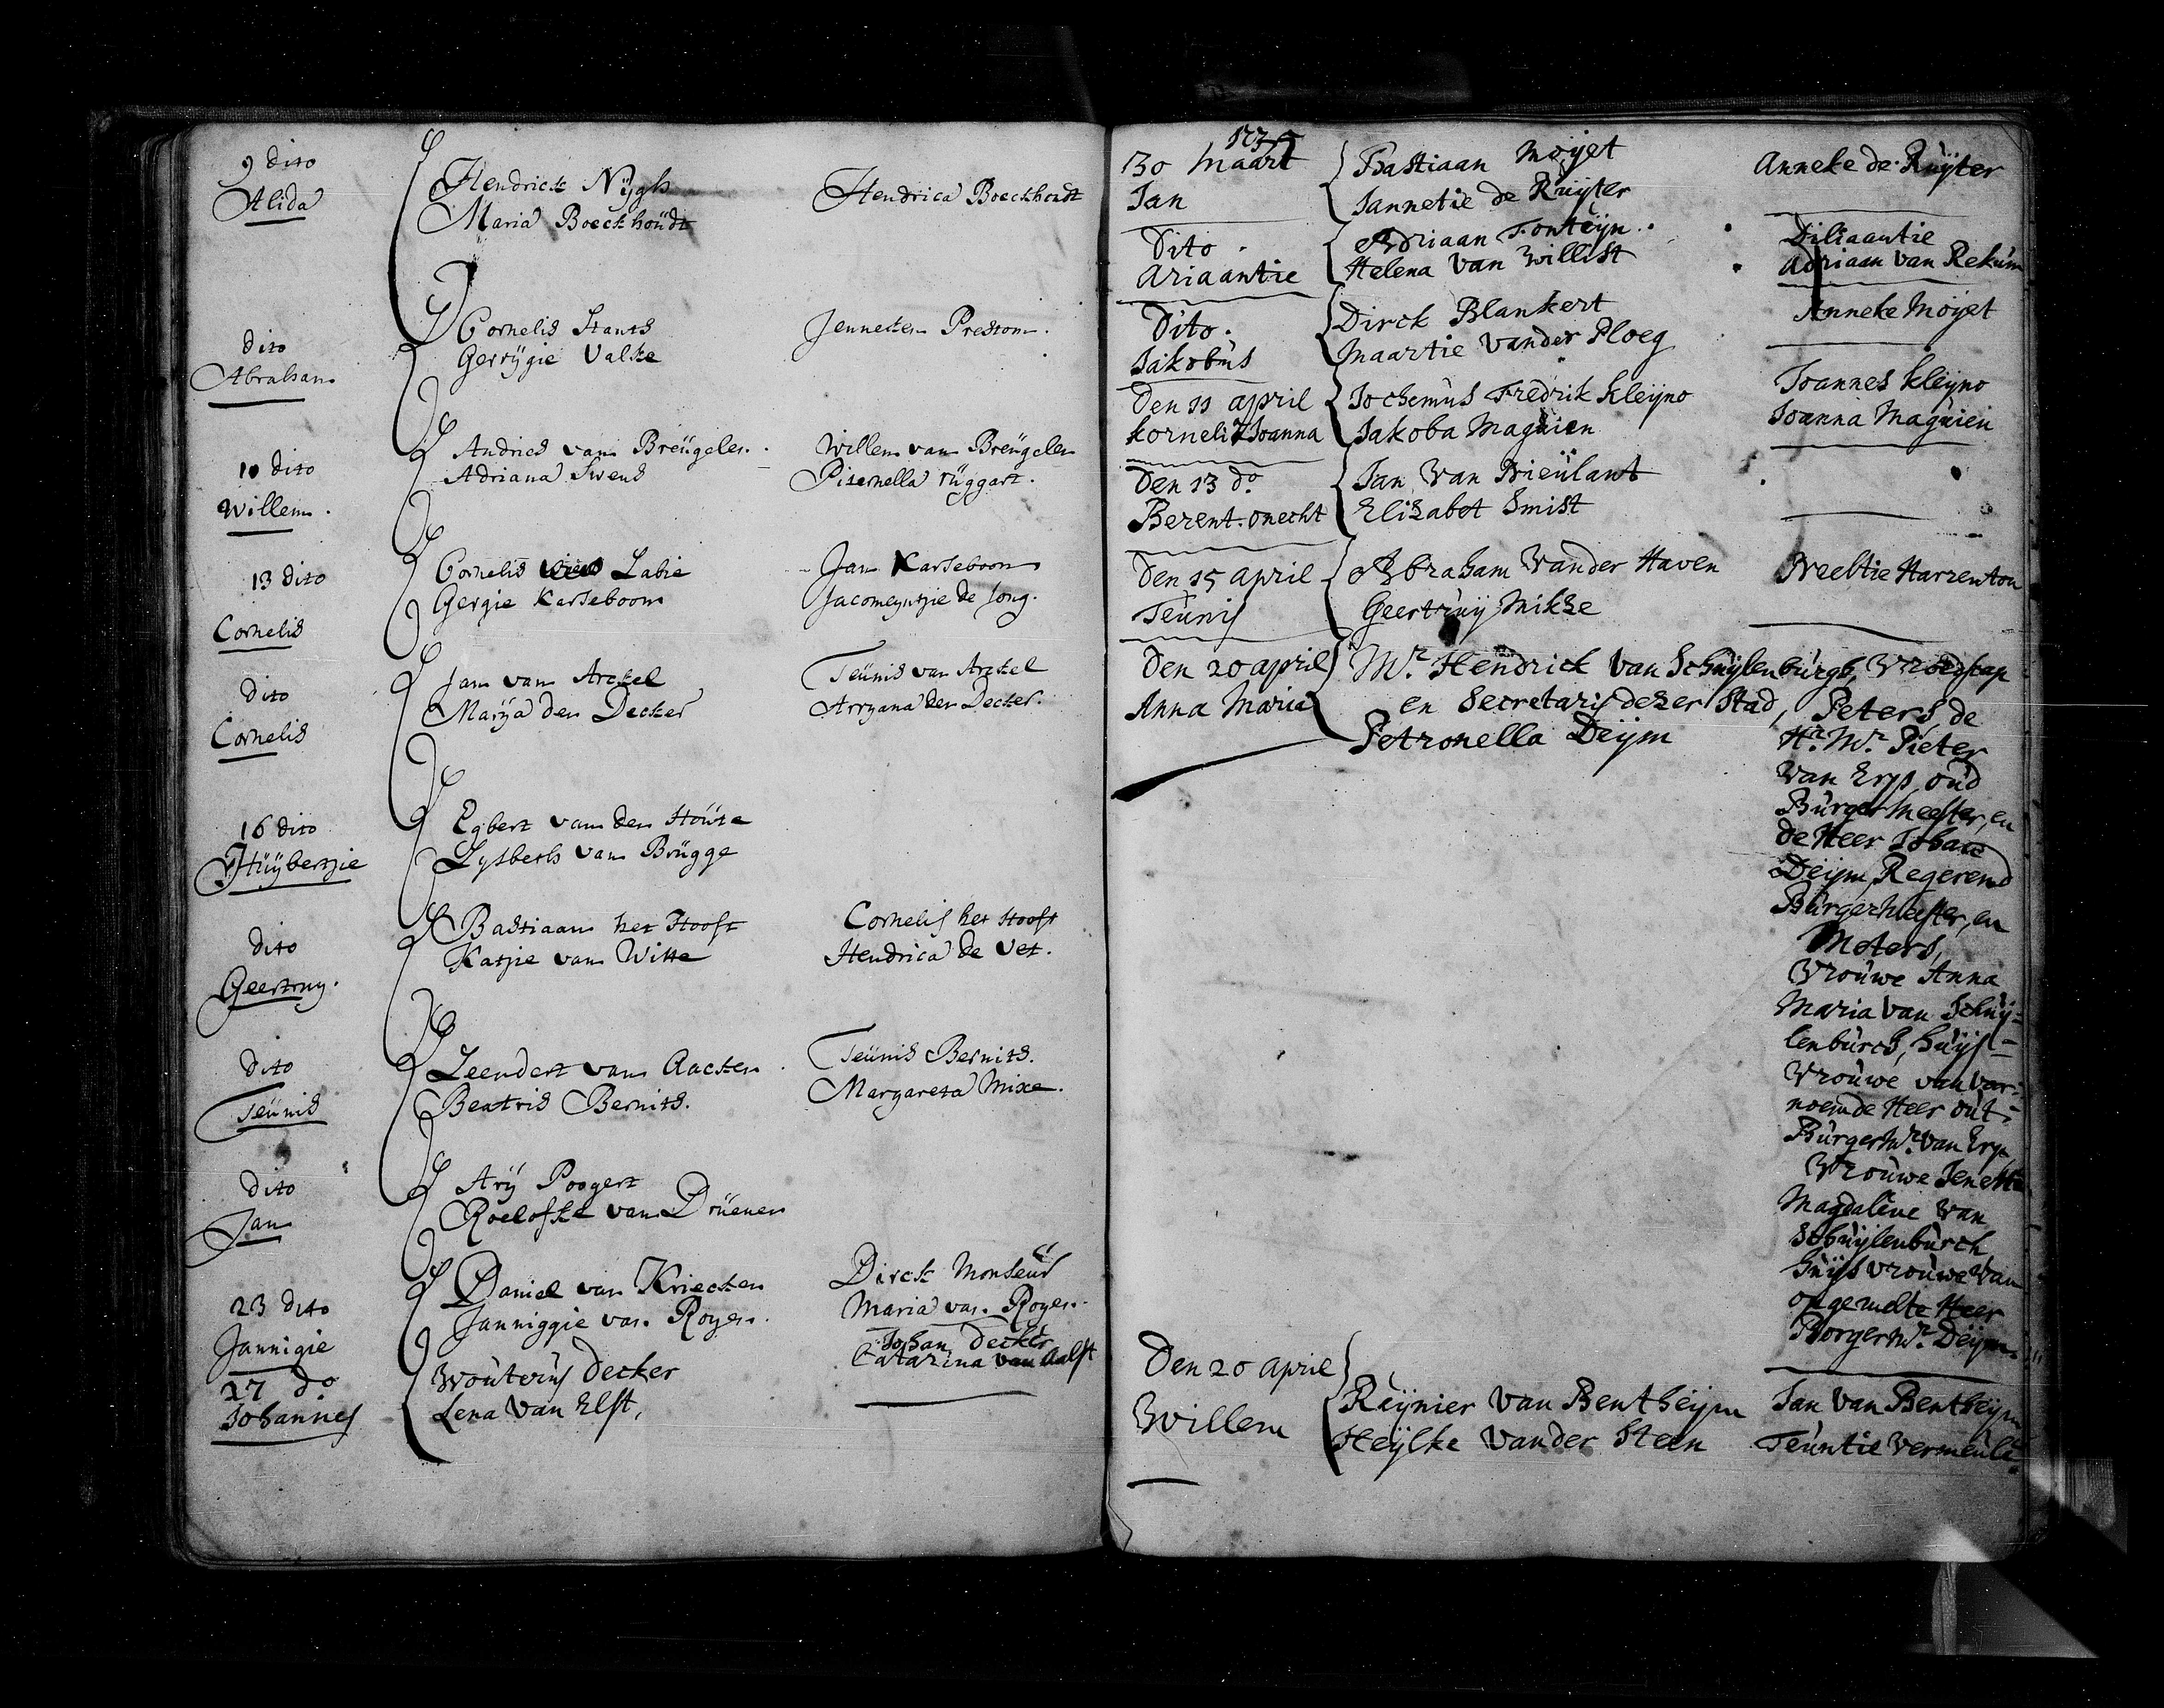 9 dito
Alida
Hendrick Nijgh
Maria Boeckhoudt
Hendrica Boeckhoudt
dito
Abraham
Cornelis Stants
Gerrijgie Valke
Jenneken Prestom.
10 dito
Willem.
Andries van Breugelen.
Adriana Swens
Willem van Breugelen
Piternella ruggart.
13 dito
Cornelis
Cornelis Labie
Gergie Karseboom
Jan Karseboom
Jacomeyntjie de Jong.
dito
Cornelis
Jan van Arckel
Marija den Decker
Teunis van Arckel
Arryana den Decker.
16 dito
Huijbertjie
Egbert van den Houte
Lysbeth van Brugge
dito
Geertruy.
Bastiaan het Hooft
Katjie van Witte
Cornelis het Hooft
Hendrica de Vet.
dito
Teunis
Leendert van Aacken
Beatris Bernits.
Teunis Bernits.
Margareta Mixe.
dito
Jan
Arij Poogert
Roelofke van Druenen
23 dito
Jannigie
Daniel van Kriecken
Janniggie van Royen.
Dirck Monseur
Maria van Royen.
27 do
Johannes
Wouterus Decker
Lena van Elst,
Johan Decker
Catarina van Aalst
30 Maart
Jan
Bastiaan Moijet
Jannetie de Ruijter
Anneke de Ruijter
Dito.
Ariaantie
Adriaan Fonteijn.
Helena van Willist
Diliaantie
Adriaan van Rekum
Dito.
Jakobus
Dirck Blankert
Maartie vander Ploeg
Anneke Moijet
Den 11 april
Joanna
Jochemus Fredrik Kleijno
Jakoba Magnien
Joannes Kleijno
Joanna Magnien
Den 13 do.
Berent. onecht
Jan van Nieulant
Elizabet Smist
Den 15 april
Teunis
Abraham vander Haven
Geertruij Mikze
Neeltie Harrenton
Den 20 april
Anna Maria
Mr. Hendrick van Schuijlenburgh, Vroedscap
en Secretaris dezer Stad,
Petronella Deijm
Peters, de
Hr. Mr. Pieter
van Erp, oud
Burgermeester, en
de Heer Johan
Deijm, Regerend
Burgermeester, en
Meters,
Vrouwe Anna
Maria van Schuij=
lenburch, huijs=
vrouwe van voor=
noemde Heer out=
Burgermr. van Erp
Vrouwe Jenetta
Magdalene van
Schuijlenburch
huijsvrouwe van
opgemelte Heer
Borgermr. Deijm.
Den 20 april
Willem
Reijnier van Bentheijm
Heijlke vander Steen
Jan van Bentheijm
Teuntie Vermeule